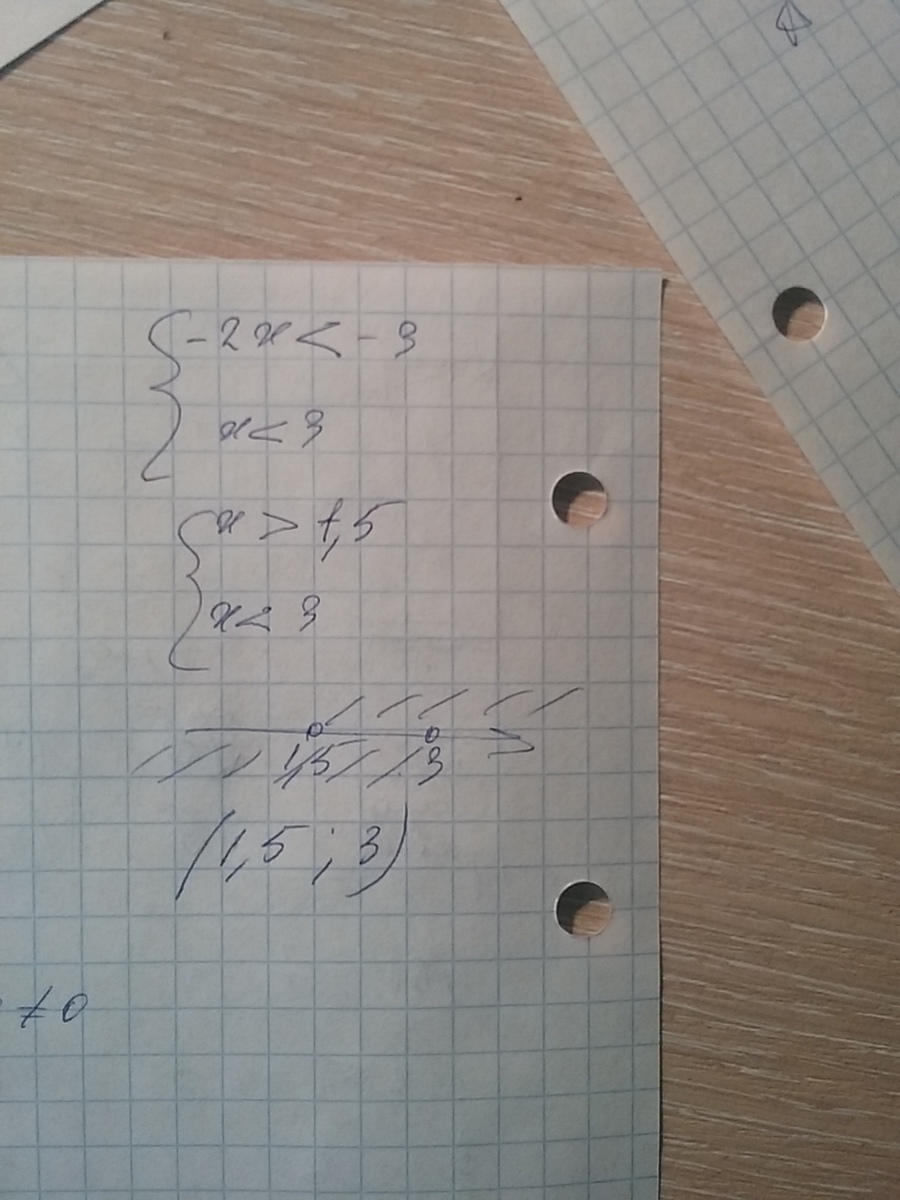 -2x < -3
x < 3
x > 1,5
x < 3
1,5 3
(1,5 ; 3)
≠ 0